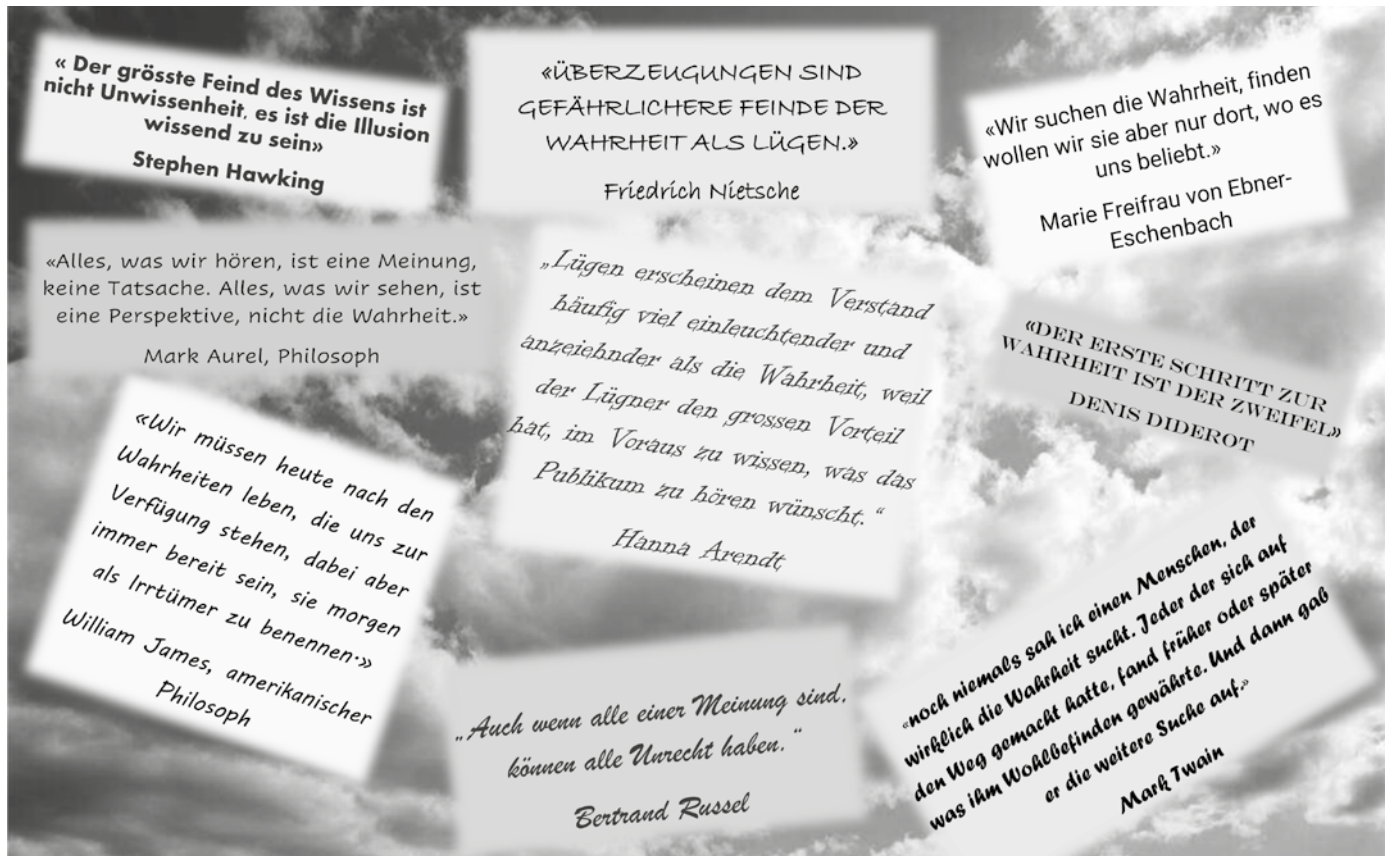 « Der grösste Feind des Wissens ist
nicht Unwissenheit, es ist die Illusion
wissend zu sein»
Stephen Hawking
«ÜBERZEUGUNGEN SIND
GEFÄHRLICHERE FEINDE DER
WAHRHEIT ALS LÜGEN.»
Friedrich Nietsche
«Wir suchen die Wahrheit, finden
wollen wir sie aber nur dort, wo es
uns beliebt.»
Marie Freifrau von Ebner-
Eschenbach
«Alles, was wir hören, ist eine Meinung,
keine Tatsache. Alles, was wir sehen, ist
eine Perspektive, nicht die Wahrheit.»
Mark Aurel, Philosoph
„Lügen erscheinen dem Verstand
häufig viel einleuchtender und
anzeiehnder als die Wahrheit, weil
der Lügner den grossen Vorteil
hat, im Voraus zu wissen, was das
Publikum zu hören wünscht.“
Hanna Arendt
«DER ERSTE SCHRITT ZUR
WAHRHEIT IST DER ZWEIFEL»
DENIS DIDEROT
«Wir müssen heute nach den
Wahrheiten leben, die uns zur
Verfügung stehen, dabei aber
immer bereit sein, sie morgen
als Irrtümer zu benennen.»
William James, amerikanischer
Philosoph
„Auch wenn alle einer Meinung sind,
können alle Unrecht haben.“
Bertrand Russel
«noch niemals sah ich einen Menschen, der
wirklich die Wahrheit sucht. Jeder der sich auf
den Weg gemacht hatte, fand früher oder später
was ihm Wohlbefinden gewährte. Und dann gab
er die weitere Suche auf.»
Mark Twain